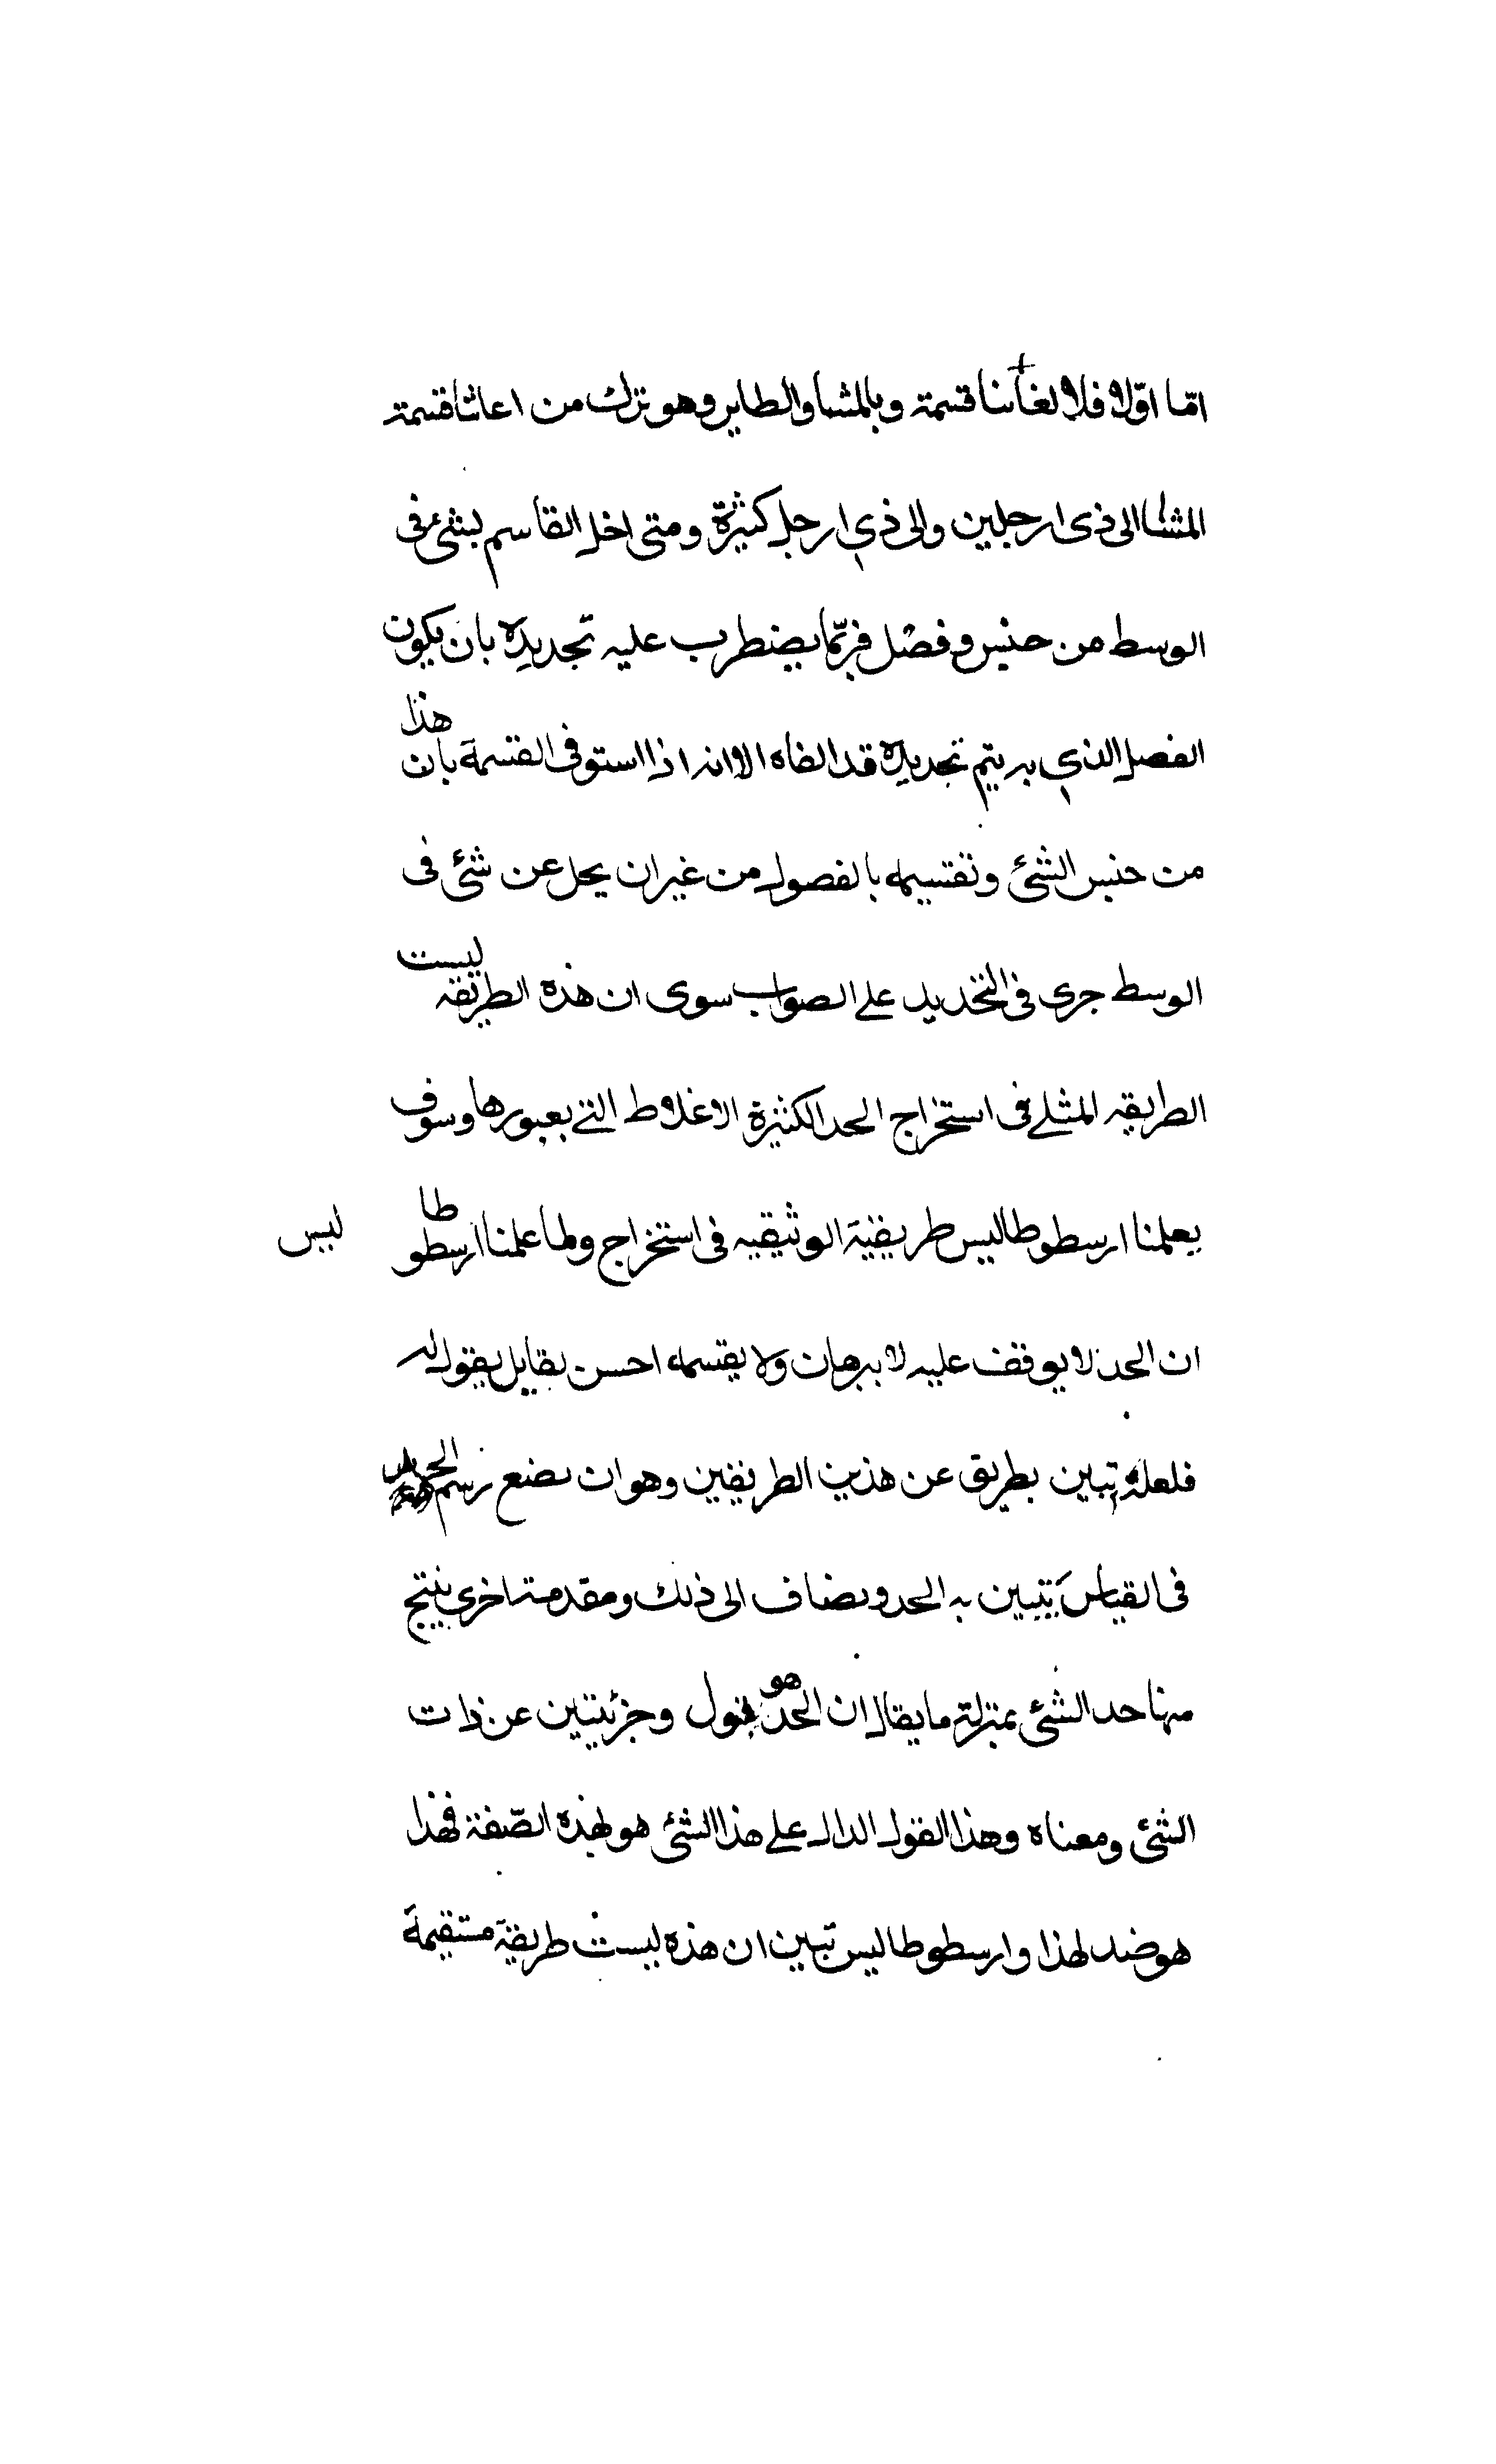 امّا اوّلا فلالغائنا قسمة وبالمشا والطاير وهو ترك من اعاثنا قسمة
المشا الى ذى ارجلين والى ذي ارجل كثيرة ومتى اخل القاسم لبشئ فى
الوسط من جنس وفصل فربّما يضطرب عليه تحديده بان يكون
الفصل الذي به يتم تحديده قد الفاه الا انه اذا استوفى القسمة بان هذا
من جنس الشئ وتقتسيمه بالفصول من غير ان يحل عن شئ فى
الوسط جرى فى التحديد على الصواب سوى ان هذه الطريقه ليست
الطريقه المثلى فى استخراج الحد الكثيرة الاغلاط التى بعبورها وسوف
يعلمنا ارسطوطاليس طريقيّة الوثيقيه فى استخراج ولما علمنا ارسطوطا ليس
ان الحد لا يوقف عليه لا ببرهان ولا يقتسمه احسن بقايل يقول له
فلعله تبين بطريق عن هذين الطريقين وهو ان نضع رسم الحد
فى القياس يتبين به الحد ونضاف الى ذلك ومقدمة اخرى ينتج
منها حد الشئ بمنزلة ما يقال ان الحد هو قول وجزئيتين عن ذات
الشئ ومعناه وهذا القول الدال على هذا الشئ هو لهذه الصّفة فهذا
هو ضد لهذا وارسطوطاليس تبين ان هذه ليست طريقة مستقيمة